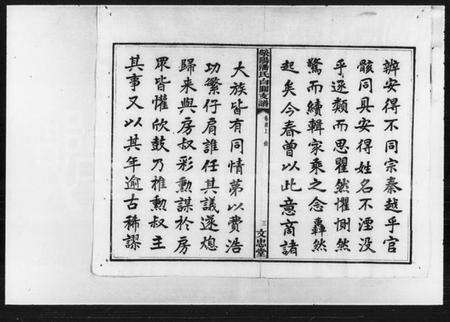 辦安得不同宗秦越乎官
骸同具安得姓名不湮没
乎逐纇而思瞿然懼惻然
驚而續輯家乘之念轟然
起矣今春曾以此意商諸
陽潘氏白關支譜
卷首上
三
文忠堂
大族皆有同情第以費浩
功繁仔肩誰任其議遂熄
歸來與房叔彩勳謀於房
眾皆懽欣鼓乃推勳叔主
其事又以其年逾古稀謬